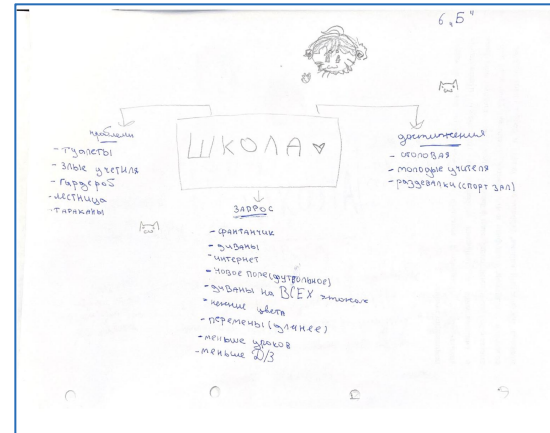 6 „Б"
ШКОЛА
проблеми
- Туалеты
- Злые учетиля
- Гардероб
- лестница
- тараканы
достижения
- столовая
- молодые учителя
- раздевалки (спорт зал)
ЗАПРОС
- фантанчик
- диваны
- интернет
- новое поле (футбольное)
- диваны на ВСЕХ этажах
- нежние цвета
- перемены (длинее)
- меньше уроков
- меньше Д/З